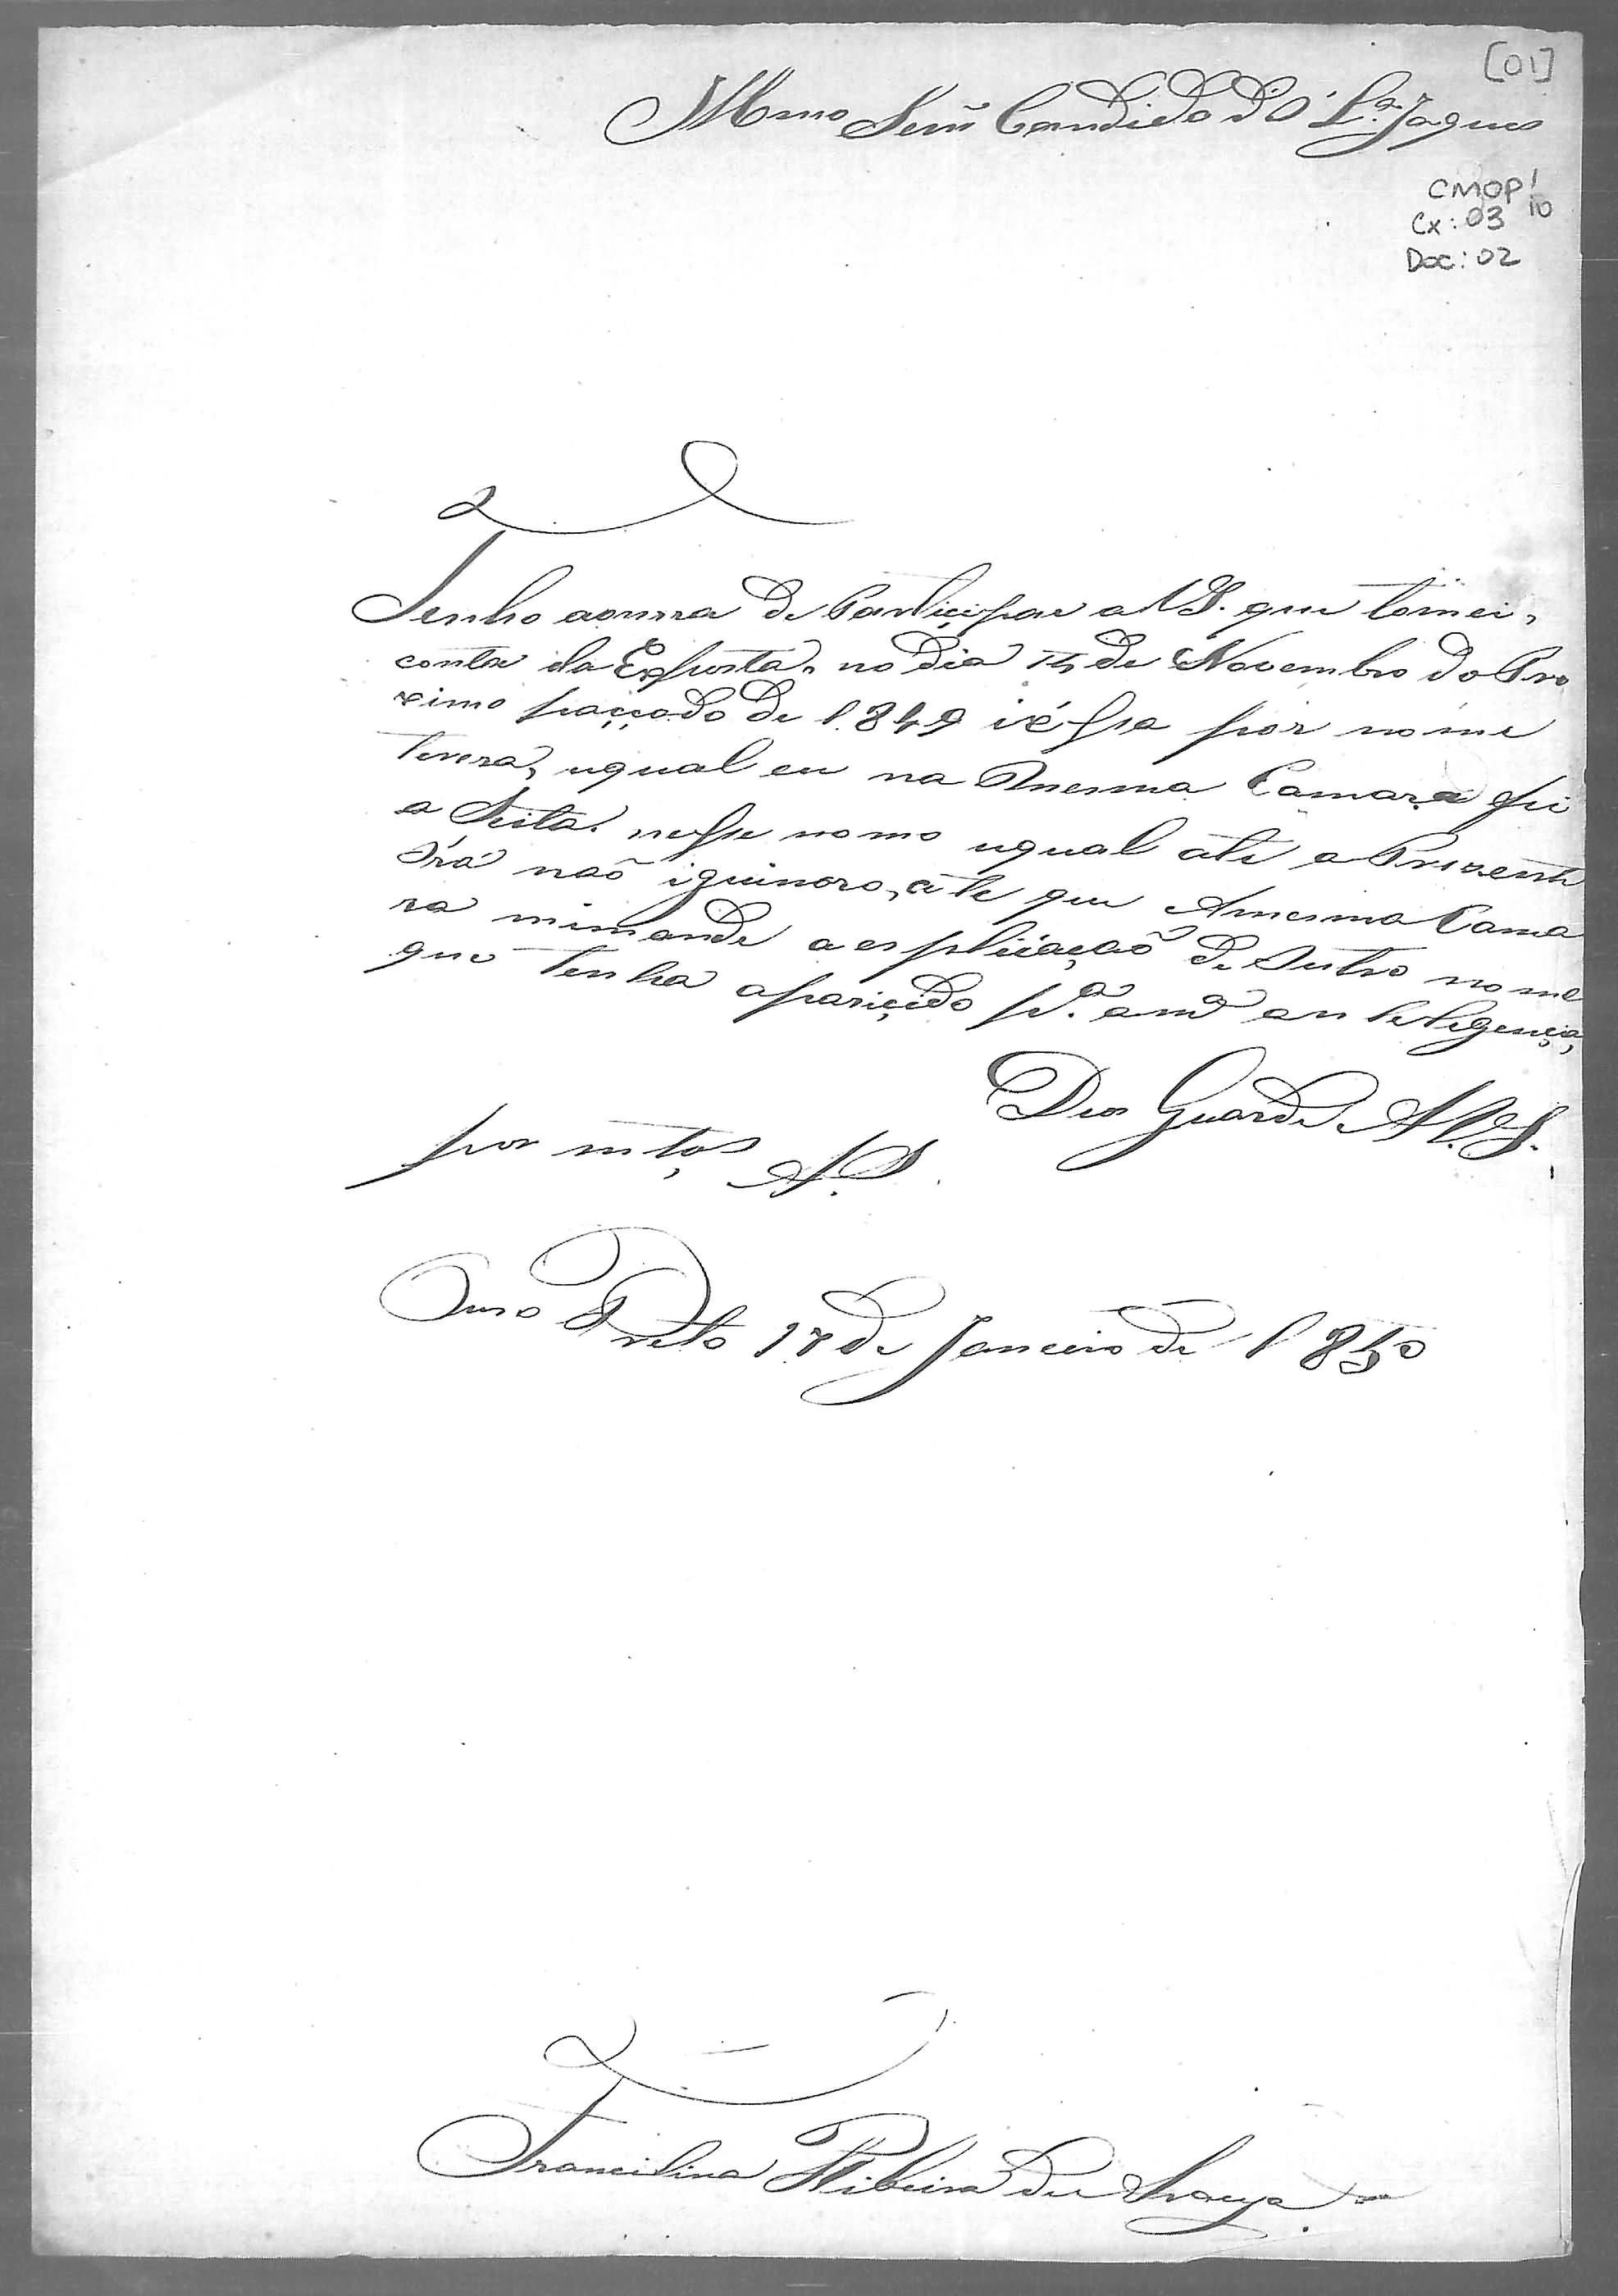 [01]
Illmo Senr Candido d'O Lª Jaques
CMOP/
Cx: 03 10
Doc: 02
Tenho aonrra de Participar a VS. que tomei,
conta da Exposta, no dia 14 de Novembro do Pro
ximo paçado de 1849 por nome
uqual eu na mesma Camara
aSeita. nesse nomo uqual ate a Prezente
não iguinoro, ate que Amesma Cama
ra mimande a esplicação de Outro nome
que tenha apariçido pª. amª antelegençia,
Deos Guarde A V.S.
por mtos A. S.
Ouro Preto 17 de Janeiro de 1850
Francilina Ribeira de Souza